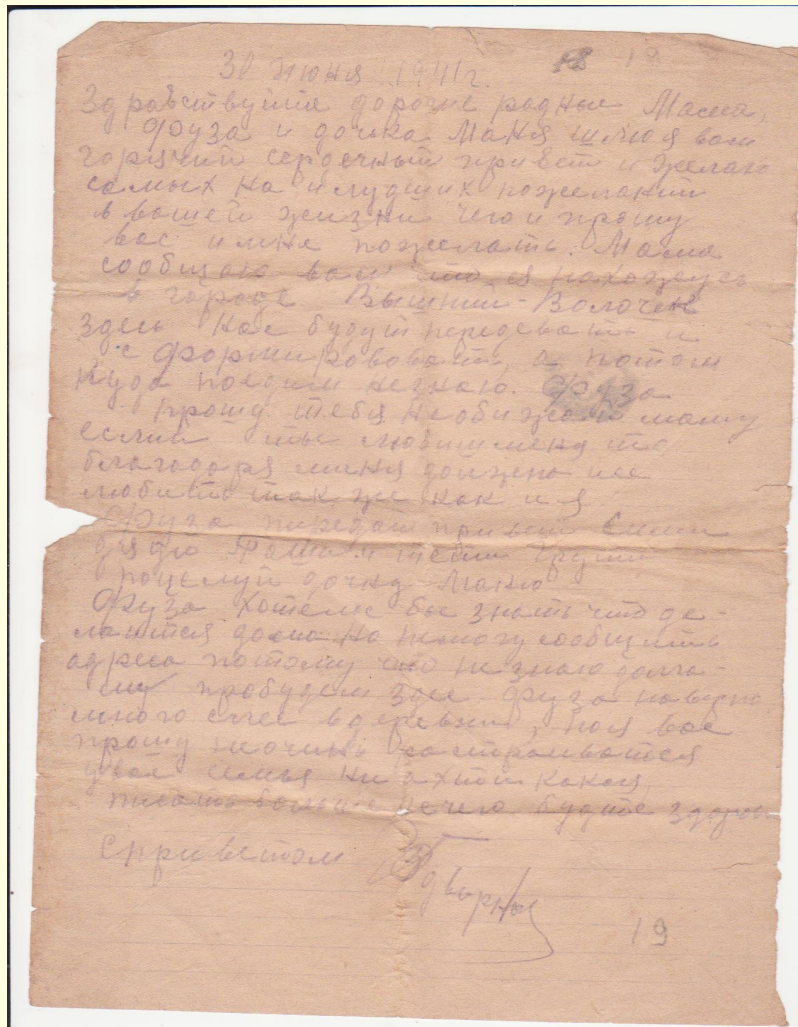 30 июня 1941 г.
18
Здравствуйте дорогие родные Мама,
Фруза и дочка Маня шлю я вам
горячий сердечный привет и желаю
самых на илудших пожеланий
в вашей жизни чего и прошу
вас и мне пожелать. Мама
сообщаю вам что я нахожусь
в городе Вышний-Волочек
здесь нас будут передевать и
с формирововать, а потом
куда поедим незнаю. Фруза
прошу тебя необижай маму
если ты любиш меня то
благодоря миня должна ие
любить так же как и я
Фруза передай привет Сими
дяди и тёти
поцелуй дочку Маню
Фруза хотелос бы знать что де-
лаится дома но немогу сообщить
адреса потому что не знаю долга-
ли пробудем зде Фруза наверно
много слез в деревни, но я вас
прошу неочинь растраиватся
увас семья ни ахти какая,
писать больше нечего будте здоровы
Сприветом
19